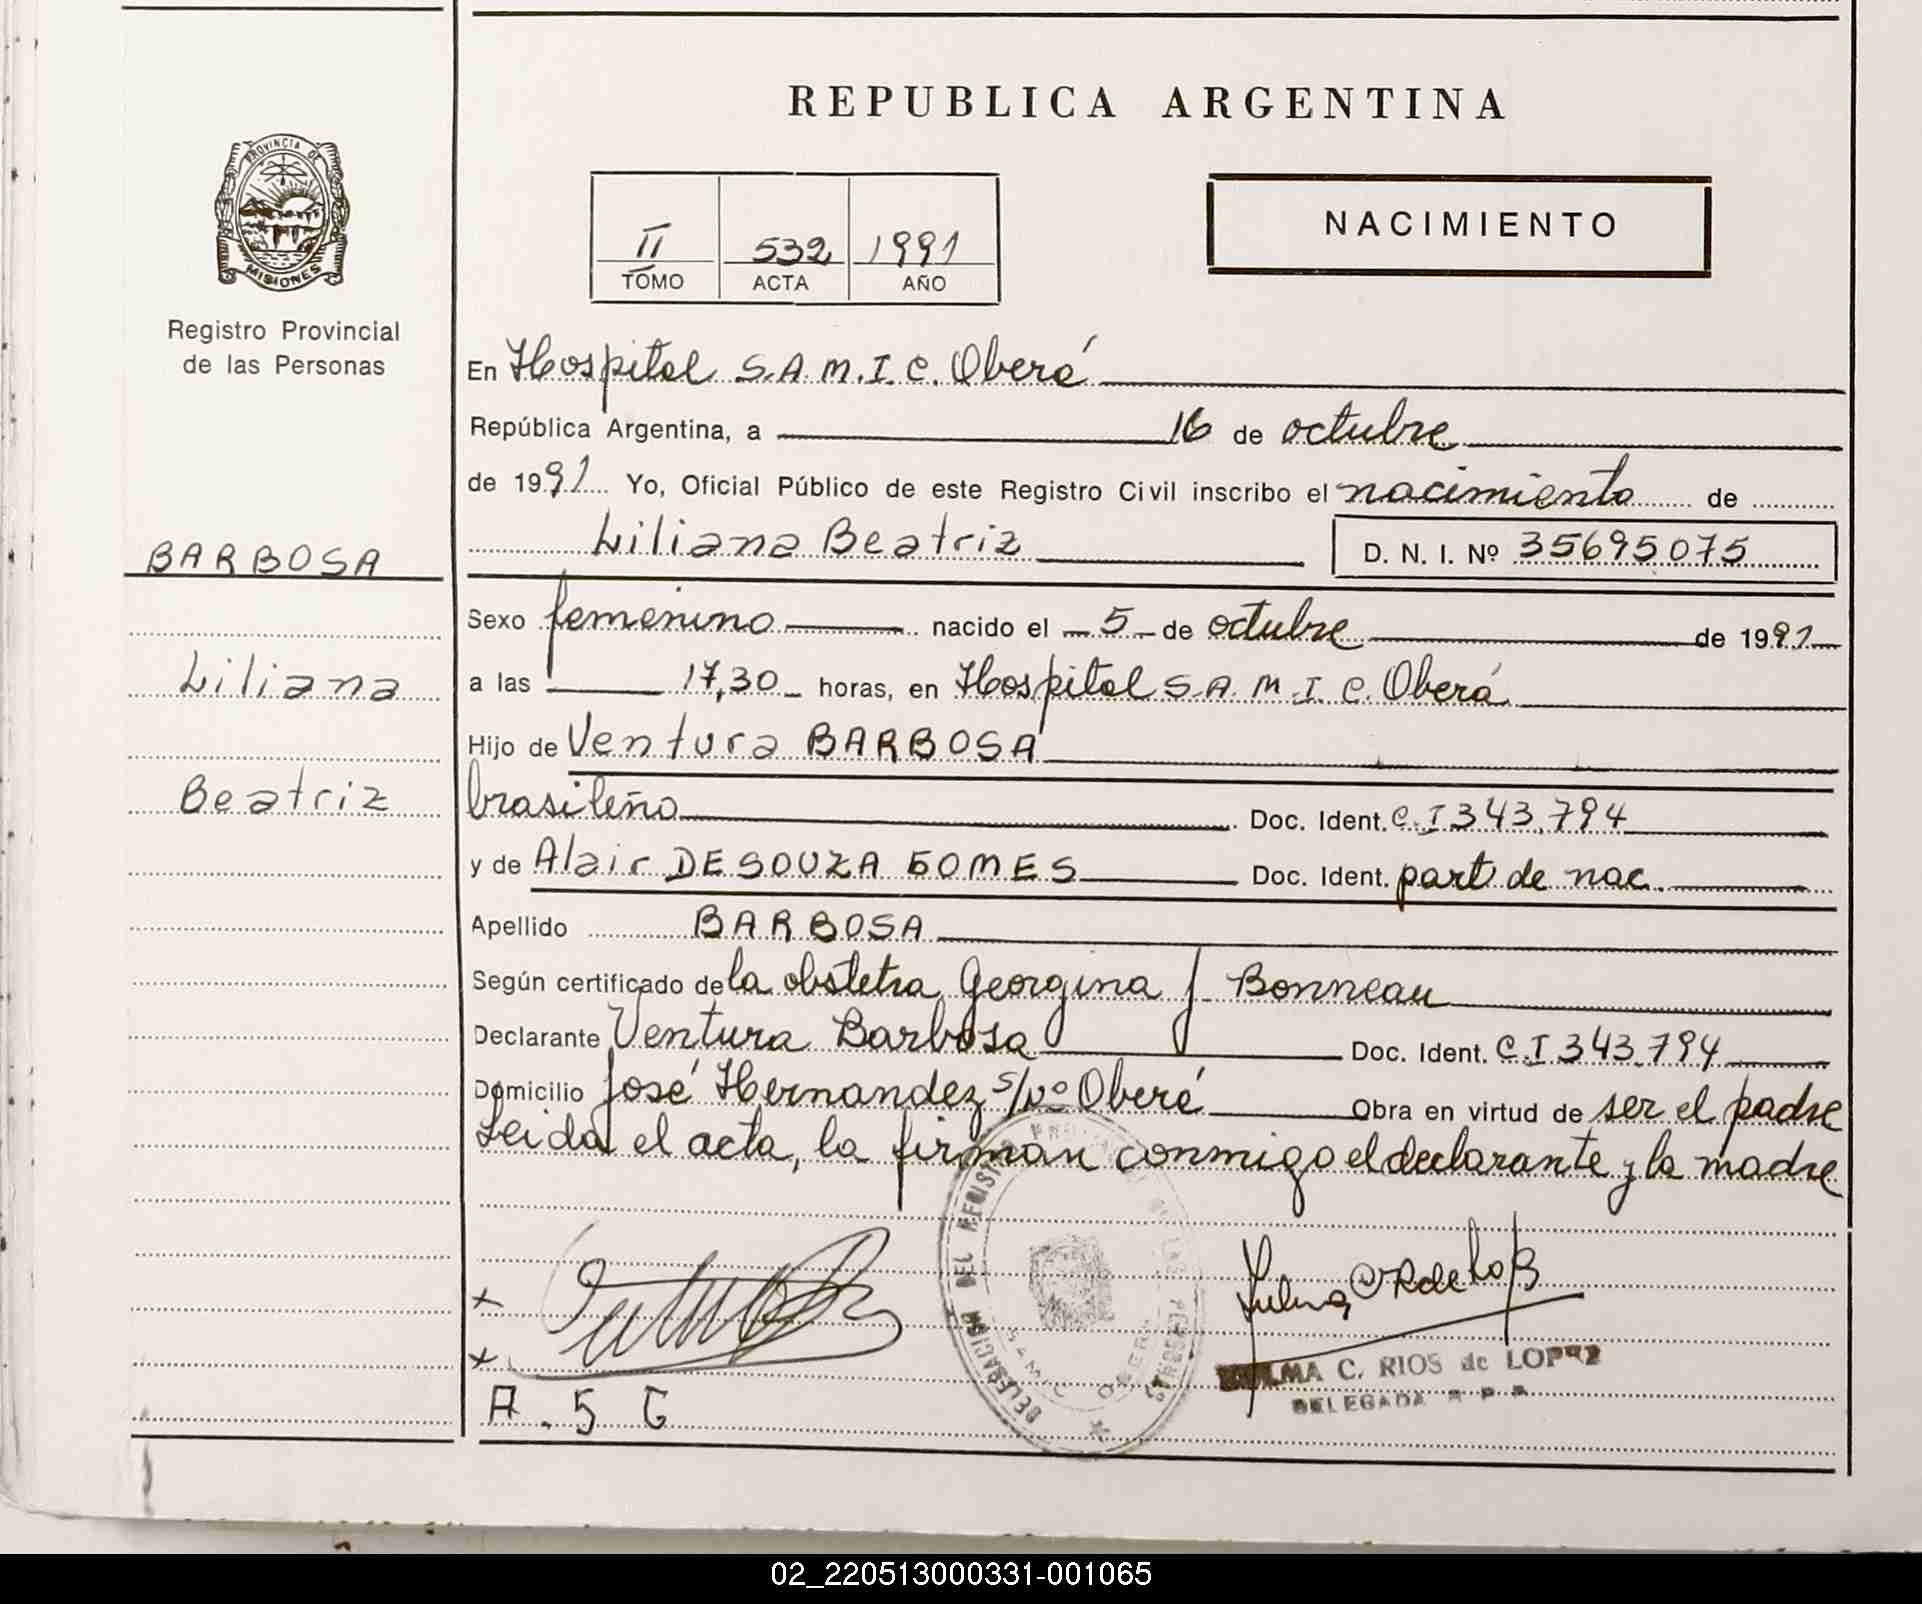 REPUBLICA ARGENTINA
PROVINCIA DE
MISIONES
Registro Provincial
de las Personas
II 532 1991
TOMO ACTA AÑO
NACIMIENTO
En Hospital S.A.M.I.C. Oberá
República Argentina, a 16 de octubre
de 1991 Yo, Oficial Público de este Registro Civil inscribo el nacimiento de
Liliana Beatriz D. N. I. Nº 35695075
BARBOSA
Liliana
Beatriz
Sexo femenino nacido el 5 de octubre de 1991
a las 17,30 horas, en Hospital S.A.M.I.C. Oberá
Hijo de Ventura BARBOSA
brasileño Doc. Ident. C.I 343.794
y de Alair DE SOUZA GOMES Doc. Ident. part de nac.
Apellido BARBOSA
Según certificado de la obstetra Georgina J Bonneau
Declarante Ventura Barbosa Doc. Ident. C.I 343.794
Domicilio José Hernandez s/nº Oberá Obra en virtud de ser el padre
Leida el acta, la firman conmigo el declarante y la madre
DELEGACION DEL REGISTRO PROVINCIAL DE LAS PERSONAS
SAMIC OBERA
ZULMA C. RIOS de LOPEZ
DELEGADA R P P
A . S G
02_220513000331-001065